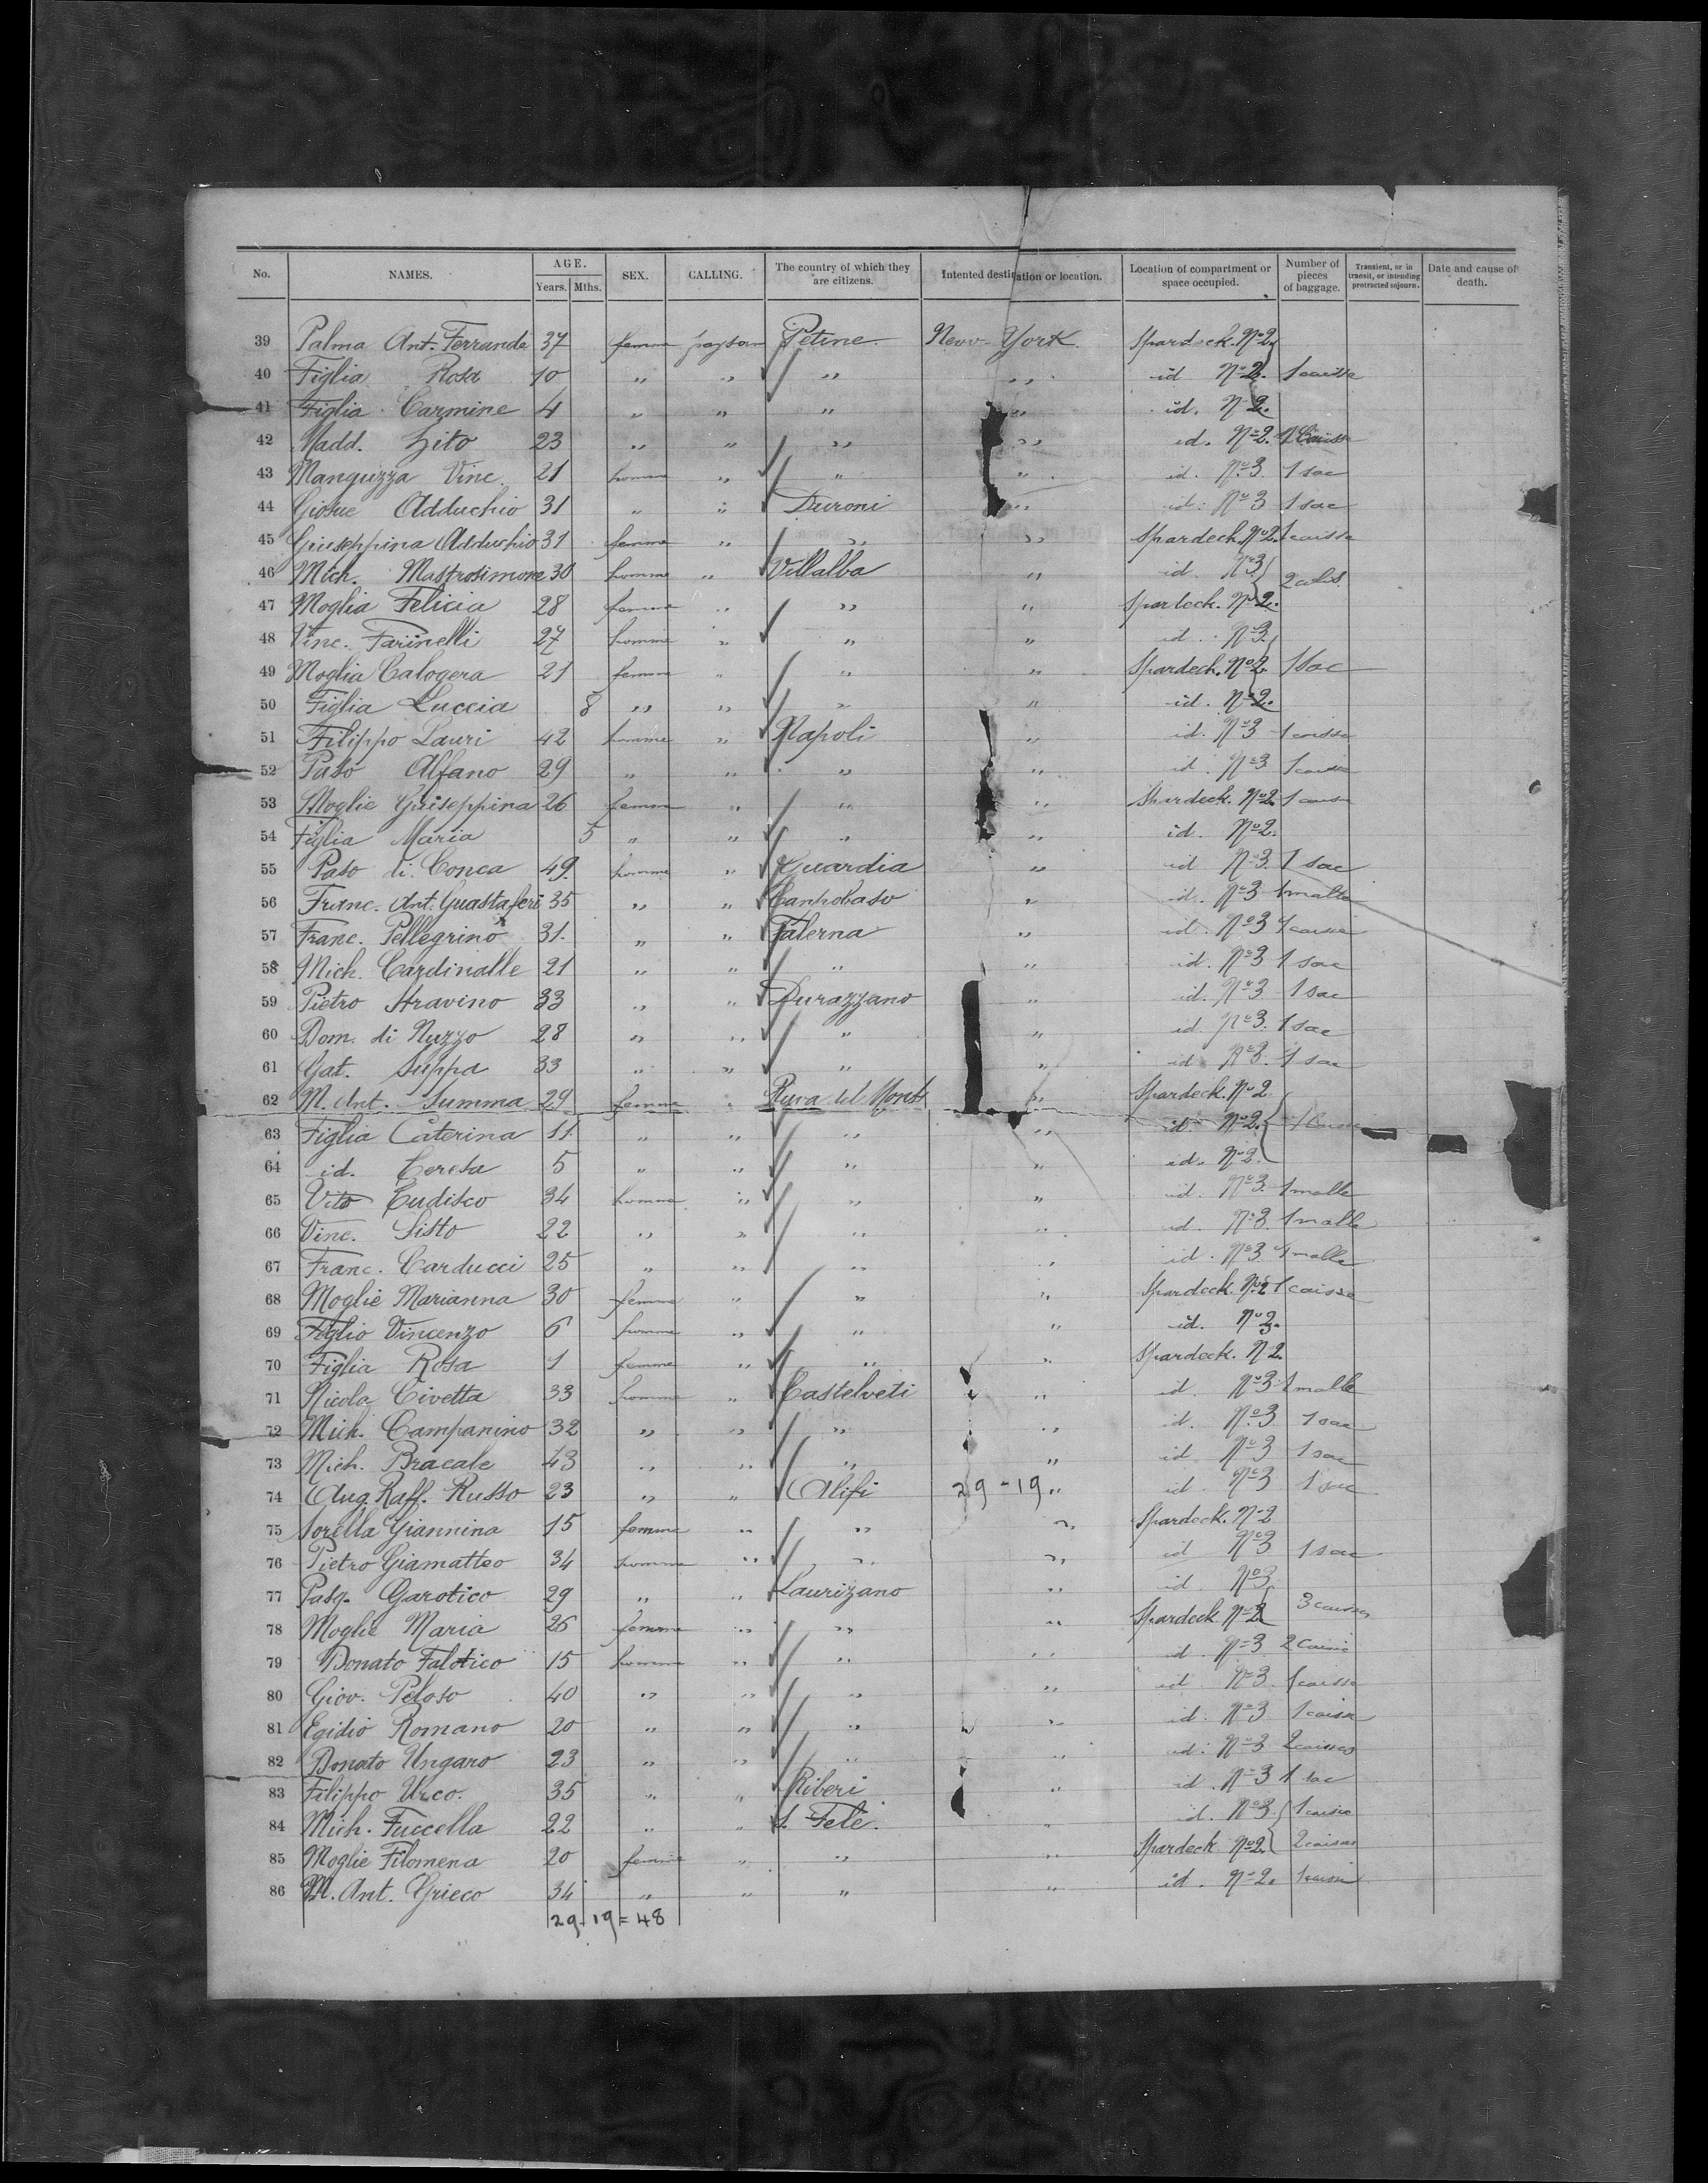 No. NAMES. AGE. Years. Mths. SEX. CALLING. The country of which they are citizens. Intented destination or location. Location of compartment or space occupied. Number of pieces of baggage. Transient, or in transit, or intending protracted sojourn. Date and cause of death.
39 Palma Ant. Ferranda 37 femme paysan Petine New-York Spardeck. No 2
40 Figlia Rosa 10 „ „ „ „ id No 2. 1 caisse
41 Figlia Carmine 4 „ „ „ „ id. No 2.
42 Madd. Zito 23 „ „ „ „ id. No 2. 1 Caisse
43 Manguzza Vinc. 21 homme „ „ „ id. No 3. 1 sac
44 Giosue Adduchio 31 „ „ Duroni „ id. No 3 1 sac
45 Giuseppina Adduchio 31 femme „ „ „ Spardeck. No 2. 1 caisse
46 Mich. Mastrosimone 30 homme „ Villalba „ id. No 3 2 colis
47 Moglia Felicia 28 femme „ „ „ Spardeck. No 2.
48 Vinc. Farinelli 27 homme „ „ „ id. No 3.
49 Moglia Calogera 21 femme „ „ „ Spardeck. No 2. 1 Sac
50 Figlia Luccia 8 „ „ „ „ id. No 2.
51 Filippo Lauri 42 homme „ Napoli „ id. No 3 1 caisse
52 Paso Alfano 29 „ „ „ „ id. No 3 1 caisse
53 Moglie Guiseppina 26 femme „ „ „ Spardeck. No 2 1 caisse
54 Figlia Maria 5 „ „ „ „ id. No 2.
55 Paso di Conca 49 homme „ Guardia „ id No 3. 1 sac
56 Franc. Ant. Guastaferi 35 „ „ Canpobaso „ id. No 3 1 malle
57 Franc. Pellegrino 31. „ „ Falerna „ id. No 3 1 caisse
58 Mich. Cardinalle 21 „ „ „ „ id. No 3 1 sac
59 Pietro Stravino 33 „ „ Durazzano „ id. No 3 1 sac
60 Dom. di Nuzzo 28 „ „ „ „ id. No 3. 1 sac
61 Gat. Suppa 33 „ „ „ „ id No 3. 1 sac
62 M. Ant. Summa 29 femme „ Ruva del Monte „ Spardeck. No 2
63 Figlia Caterina 11. „ „ „ „ id. No 2. 1 Caisse
64 id. Teresa 5 „ „ „ „ id. No 2.
65 Vito Eudisco 34 homme „ „ „ id. No 3. 1 malle
66 Vinc. Sisto 22 „ „ „ „ id. No 3 1 malle
67 Franc. Carducci 25 „ „ „ „ id. No 3 1 malle
68 Moglie Marianna 30 femme „ „ „ Spardeck. No 2 1 caisse
69 Figlio Vincenzo 6 homme „ „ „ id. No 3.
70 Figlia Rosa 1 femme „ „ „ Spardeck. N 2.
71 Nicola Civetta 33 homme „ Castelveti „ id. No 3 1 malle
72 Mich. Campanino 32 „ „ „ „ id. No 3 1 sac
73 Mich. Bracale 43 „ „ „ „ id No 3 1 sac
74 Aug. Raff. Russo 23 „ „ Alifi 29-19 „ id. No 3 1 sac
75 Sorella Giannina 15 femme „ „ „ Spardeck. No 2
76 Pietro Giamatteo 34 homme „ „ „ id No 3 1 sac
77 Pasq. Garotico 29 „ „ Laurizano „ id. No 3 3 caisses
78 Moglie Maria 26 femme „ „ „ Spardeck No 2
79 Donato Falotico 15 homme „ „ „ id. No 3 2 Caisse
80 Giov. Peloso 40 „ „ „ „ id No 3. 1 caisse
81 Egidio Romano 20 „ „ „ „ id. No 3 1 caisse
82 Donato Ungaro 23 „ „ „ „ id. No 3 2 caisses
83 Filippo Urco. 35 „ „ Riberi „ id. No 3 1 sac
84 Mich. Fuccella 22 „ „ S. Fele. „ id. No 3. 1 caisse
85 Moglie Filomena 20 femme „ „ „ Spardeck No 2 2 caisses
86 M. Ant. Grieco 34 „ „ „ „ id. No 2. 1 caisse
29-19=48